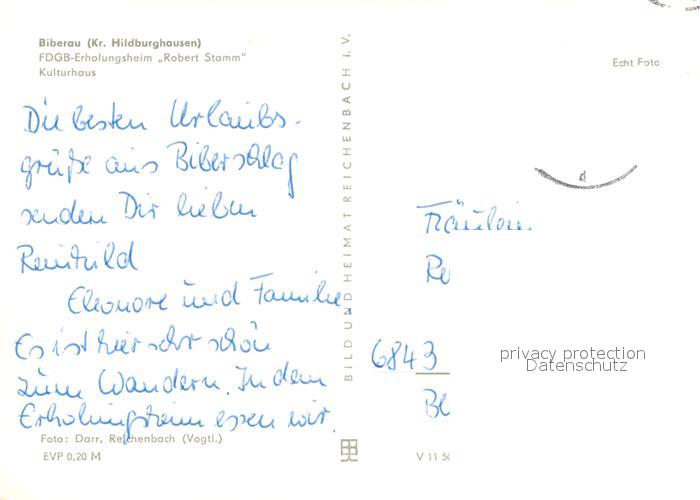 Biberau (Kr. Hildburghausen)
FDGB-Erholungsheim „Robert Stamm"
Kulturhaus
Echt Foto
Die besten Urlaubs-
grüße aus Biberschlag
senden Dir lieben
Reinhild
Eleonore und Familie.
Es ist hier sehr schön
zum Wandern. In dem
Erholungsheim essen wir.
Foto: Darr, Reichenbach (Vogtl.)
EVP 0,20 M
BILD UND HEIMAT REICHENBACH i. V.
Fräulein
Re
6843
Bl
V 11 50
privacy protection
Datenschutz